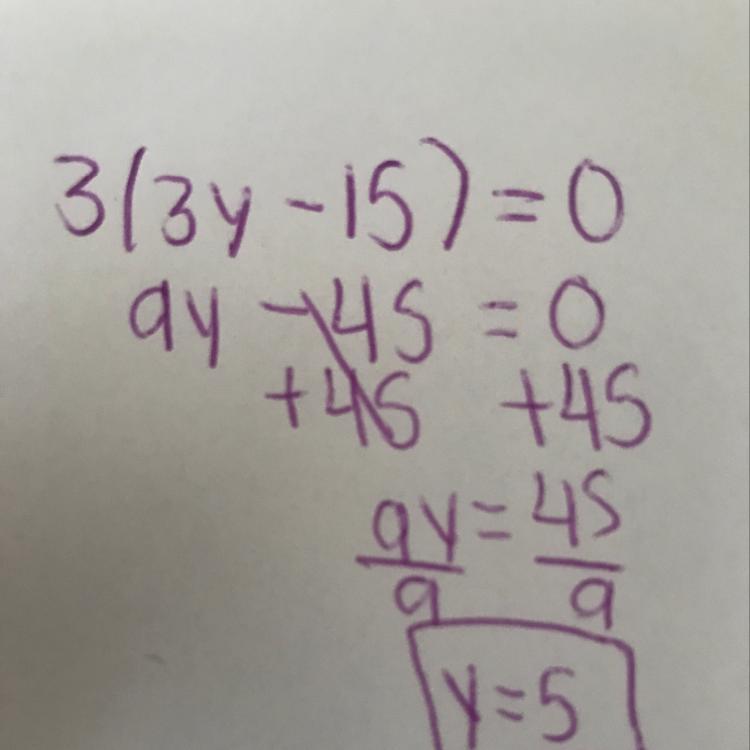 3(3y - 15) = 0
9y - 45 = 0
+45 +45
9y = 45
9 9
y = 5